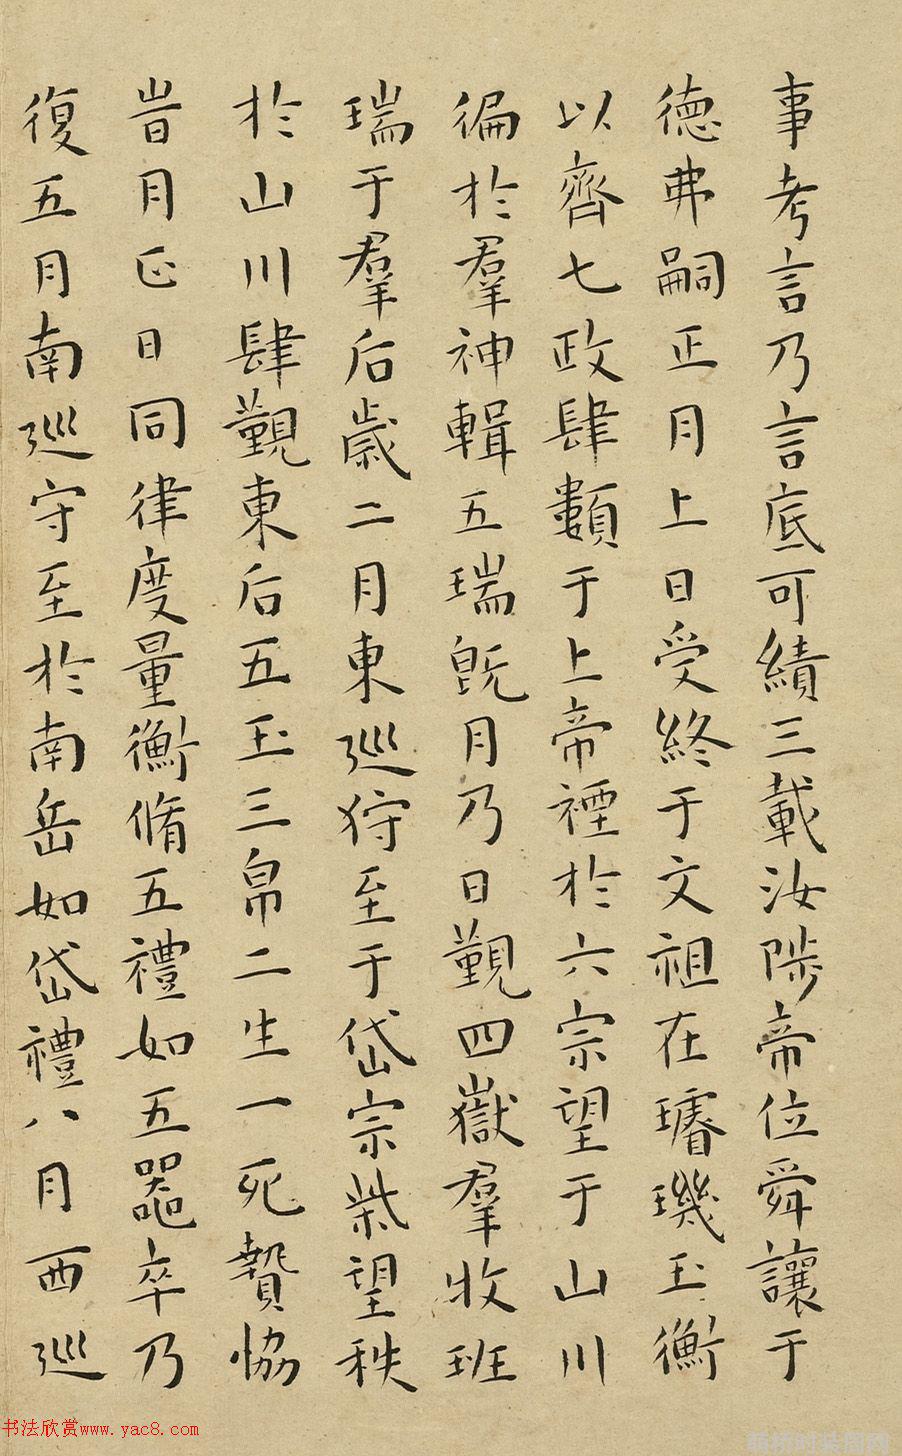 事考言乃言底可績三載汝陟帝位舜讓于
德弗嗣正月上日受終于文祖在璿璣玉衡
以齊七政肆類于上帝禋於六宗望于山川
徧於羣神輯五瑞旣月乃日覲四嶽羣牧班
瑞于羣后歲二月東巡狩至于岱宗柴望秩
於山川肆覲東后五玉三帛二生一死贄協
旹月正日同律度量衡脩五禮如五器卒乃
復五月南巡守至於南岳如岱禮八月西巡
书法欣赏www.yac8.com